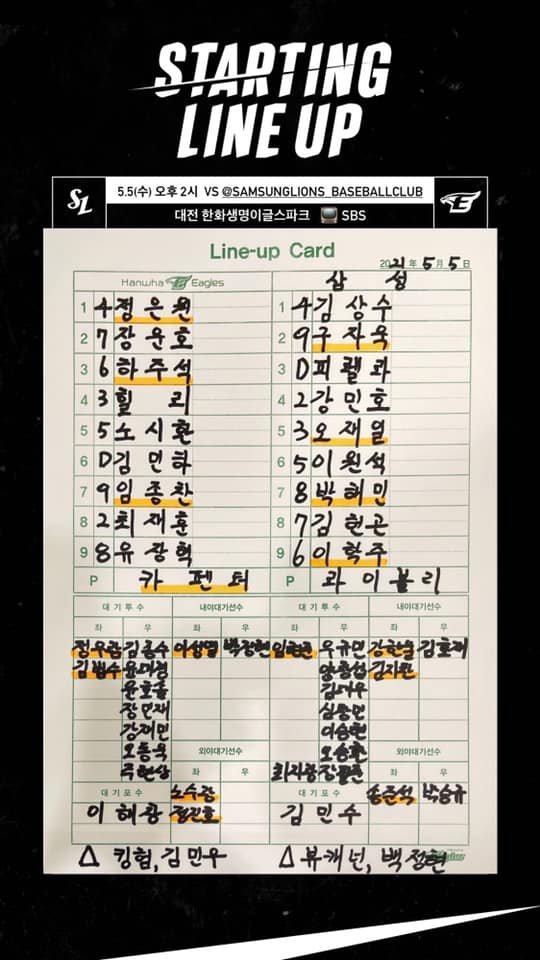 STARTING
LINE UP
SL 5.5(수) 오후 2시 VS @SAMSUNGLIONS_BASEBALLCLUB E
대전 한화생명이글스파크 SBS
Line-up Card
2021年 5月 5日
Hanwha Eagles 삼 성
1 4 정은원 1 4 김상수
2 7 장운호 2 9 구자욱
3 6 하주석 3 D 피렐라
4 3 힐 리 4 2 강민호
5 5 노시환 5 3 오재일
6 D 김민하 6 5 이원석
7 9 임종찬 7 8 박해민
8 2 최재훈 8 7 김헌곤
9 8 유장혁 9 6 이학주
P 카펜터 P 라이블리
대기투수 내야대기선수 대기투수 내야대기선수
좌 우 좌 우 좌 우 좌 우
정우람 김종수 이성열 박정현 임현준 우규민 강한울 김호재
김범수 윤대경 양창섭 김지찬
윤호솔 김대우
장민재 심창민
강재민 이승현
오동욱 외야대기선수 오승환 외야대기선수
주현상 좌 우 최지광 장필준 좌 우
대기포수 노수광 대기포수 송준석 박승규
이해창 정진호 김민수
△ 킹험, 김민우 △ 뷰캐넌, 백정현